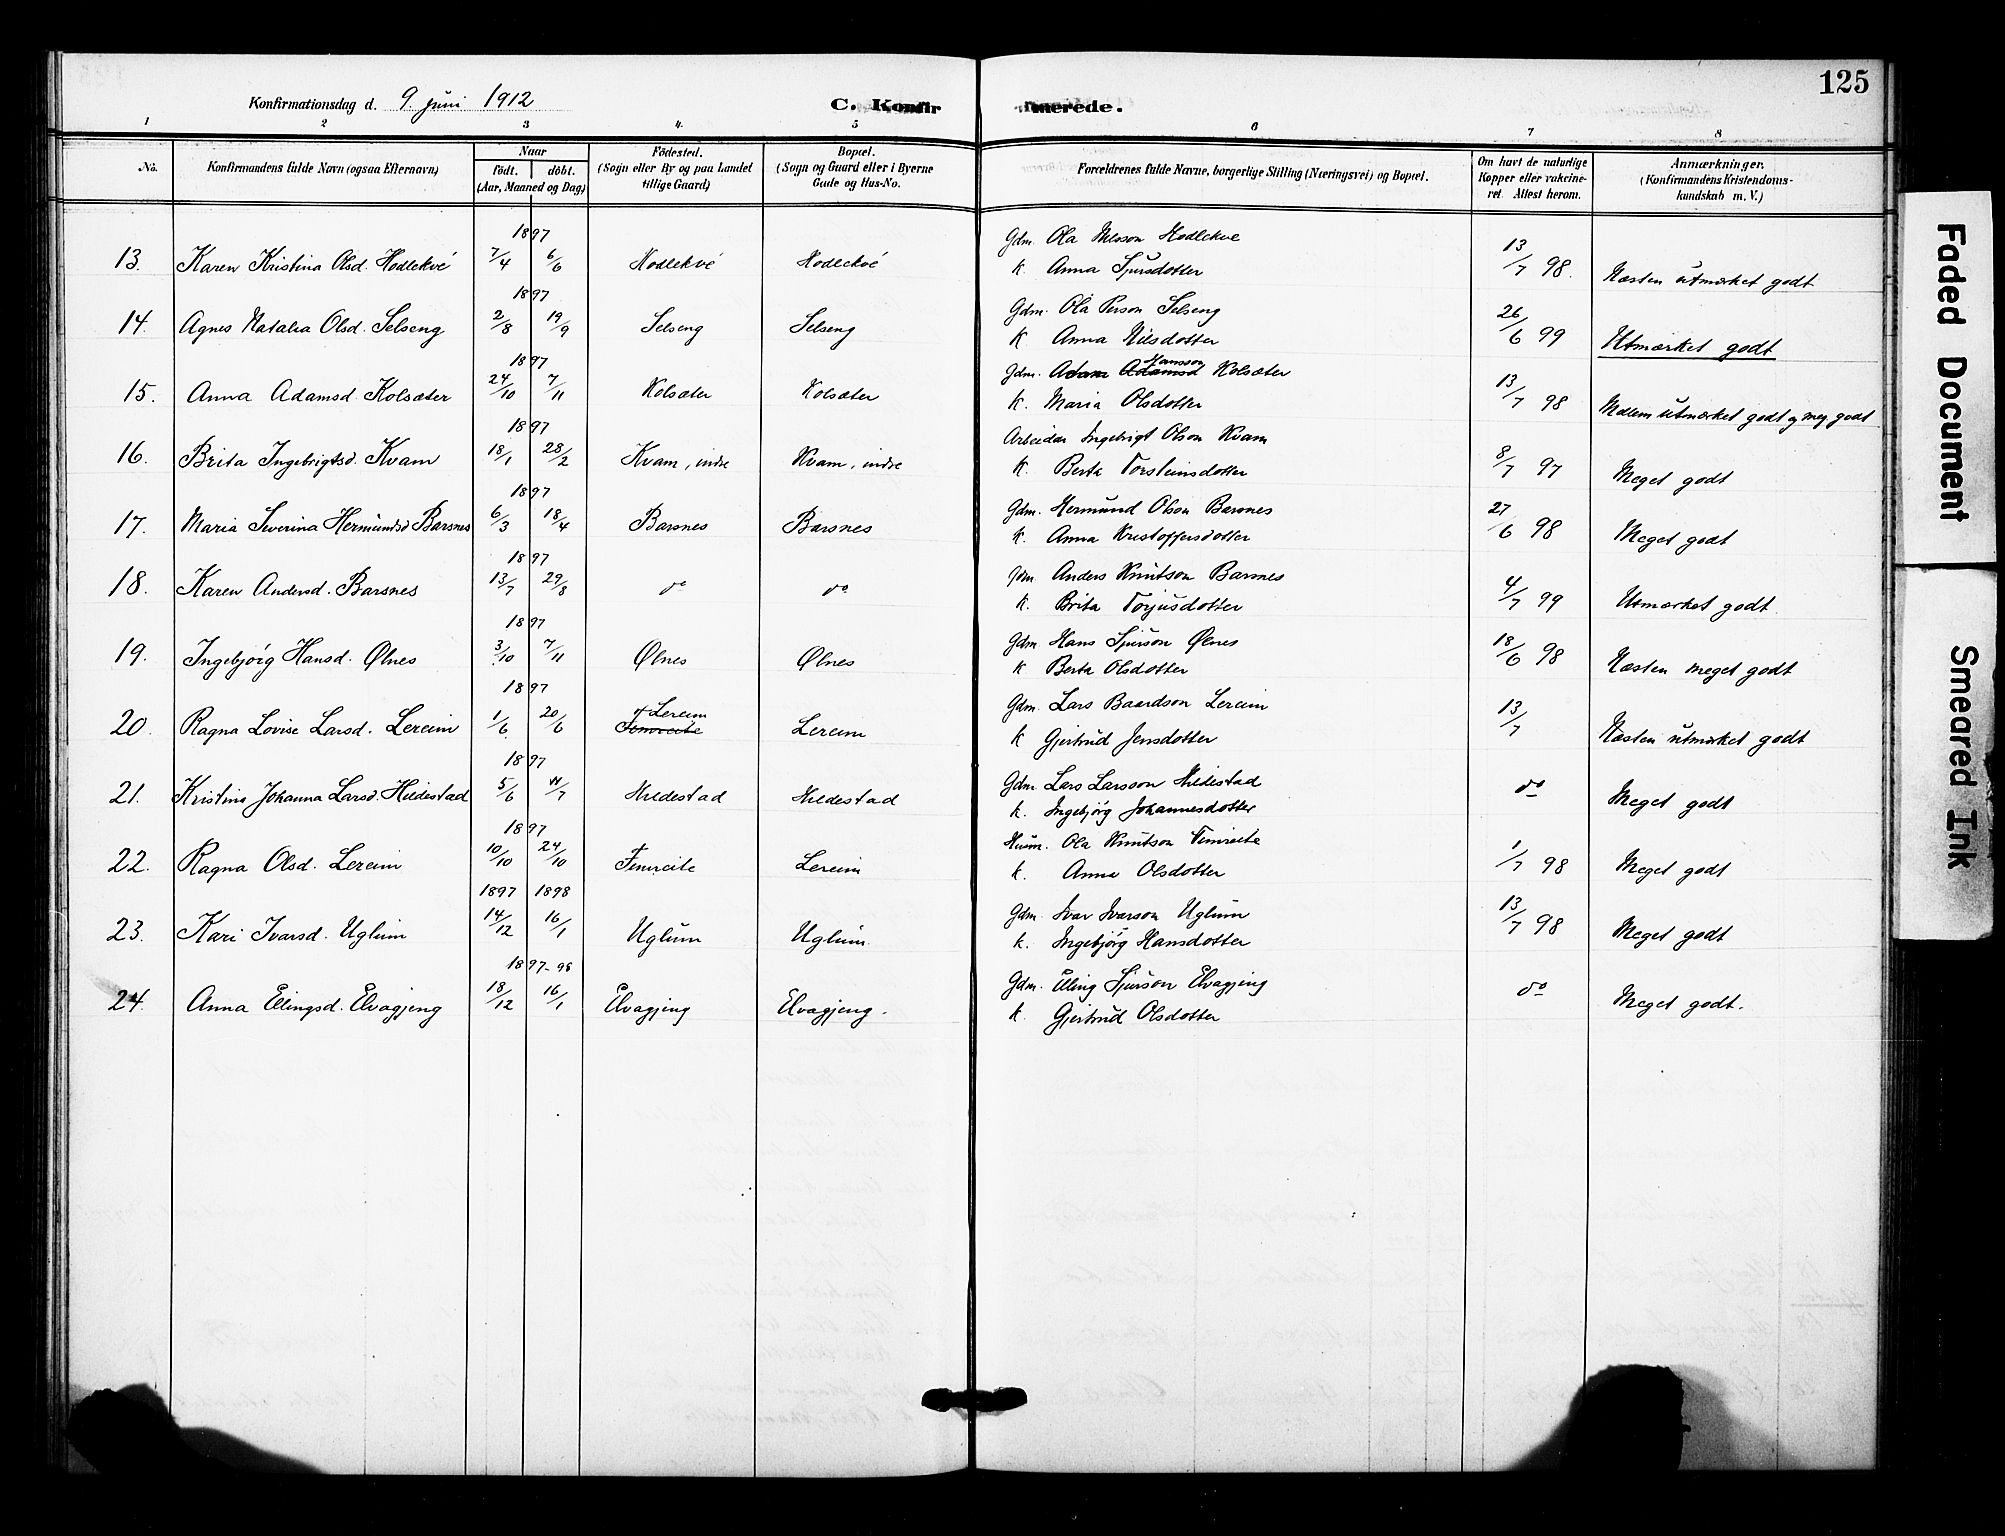 125
Konfirmationsdag d. 9. juni 1912 C. Konfir merede.
1 2 3 4. 5 6 7 8
No. Konfirmandens fulde Navn (ogsaa Efternavn) Naar født. døbt. (Aar, Maaned og Dag) Fødested. (Sogn eller By og paa Landet tillige Gaard) Bopæl. (Sogn og Gaard eller i Byerne Gade og Hus-No. Forældrenes fulde Navne, borgerlige Stilling (Næringsvei) og Bopæl. Om havt de naturlige Kopper eller vakcineret. Attest herom. Anmærkninger. (Konfirmandens Kristendomskundskab m. V.)
1897 Gdm. Ola Hodlekve
13. Karen Kristina Olsd. Hodlekvé 7/4 6/6 Hodlekvé Hodlekvé K. Anna Sjursdotter 13/7 98. Næsten utmærket godt
1897 Gdm. Ola Person Selseng
14. Agnes Natalia Olsd. Selseng 2/8 19/9 Selseng Selseng K Anna Nilsdotter 26/6 99 Utmærket godt
1897 Gdm. Adam Adamsd Hansson Kolsæter
15. Anna Adamsd. Kolsæter 24/10 7/11 Kolsæter Kolsæter K. Maria Olsdotter 13/7 98 Mellem utmærket godt og meg. godt
1897 Arbeider Ingebrigt Olson Kvam
16. Brita Ingebrigtsd. Kvam 18/1 28/2 Kvam, indre Kvam, indre K. Berta Torsteinsdotter 8/7 97 Meget godt
1897 Gdm. Hermund Olson Barsnes
17. Maria Severina Hermundsd Barsnes 6/3 18/4 Barsnes Barsnes K. Anna Kristoffersdotter 27/6 98 Meget godt
1897 Gdm. Anders Knutson Barsnes
18. Karen Andersd. Barsnes 13/7 29/8 do do K. Brita Torjusdotter 4/7 99 Utmærket godt
1897 Gdm. Hans Sjurson Ølnes
19. Ingebjørg Hansd. Ølnes 3/10 7/11 Ølnes Ølnes K Berta Olsdotter 18/6 98 Næsten meget godt
1897 Gdm. Lars Baardson Lereim
20. Ragna Lovise Larsd. Lereim 1/6 20/6 Lereim Fimreite Lereim K Gjertrud Jensdotter 13/7 Næsten utmærket godt
1897 Gdm. Lars Larsson Hildestad
21. Kristine Johanna Larsd. Hildestad 5/6 11/7 Hildestad Hildestad K. Ingebjørg Johannesdotter do Meget godt
1897 Husm. Ola Knutson Fimreite
22. Ragna Olsd. Lereim 10/10 24/10 Fimreite Lereim K. Anna Olsdotter 1/7 98 Meget godt
1897 1898 Gdm. Ivar Ivarson Uglum
23. Kari Ivarsd. Uglum 14/12 16/1 Uglum Uglum. K. Ingebjørg Hansdotter 13/7 98 Meget godt
1897-98 Gdm. Elling Sjurson Elvagjeng
24. Anna Ellingsd. Elvagjeng 18/12 16/1 Elvagjeng Elvagjeng. K. Gjertrud Olsdotter do Meget godt.
Faded Document
Smeared Ink